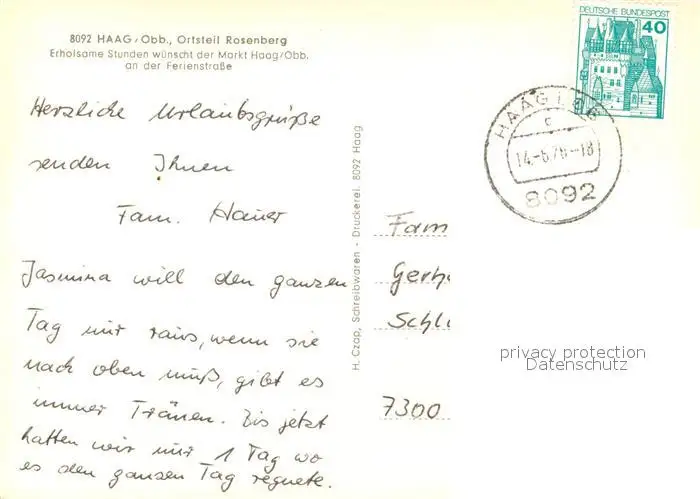 8092 HAAG/Obb., Ortsteil Rosenberg
Erholsame Stunden wünscht der Markt Haag/Obb.
an der Ferienstraße
Herzliche Urlaubsgrüße
senden Ihnen
Fam. Hauer
Jasmina will den ganzen
Tag nur raus, wenn sie
nach oben muß, gibt es
immer Tränen. Bis jetzt
hatten wir nur 1 Tag wo
es den ganzen Tag regnete.
H. Czap, Schreibwaren - Druckerei, 8092 Haag
DEUTSCHE BUNDESPOST
40
HAAG
c
8092
Fam
Gerh
Schl
7300
privacy protection
Datenschutz